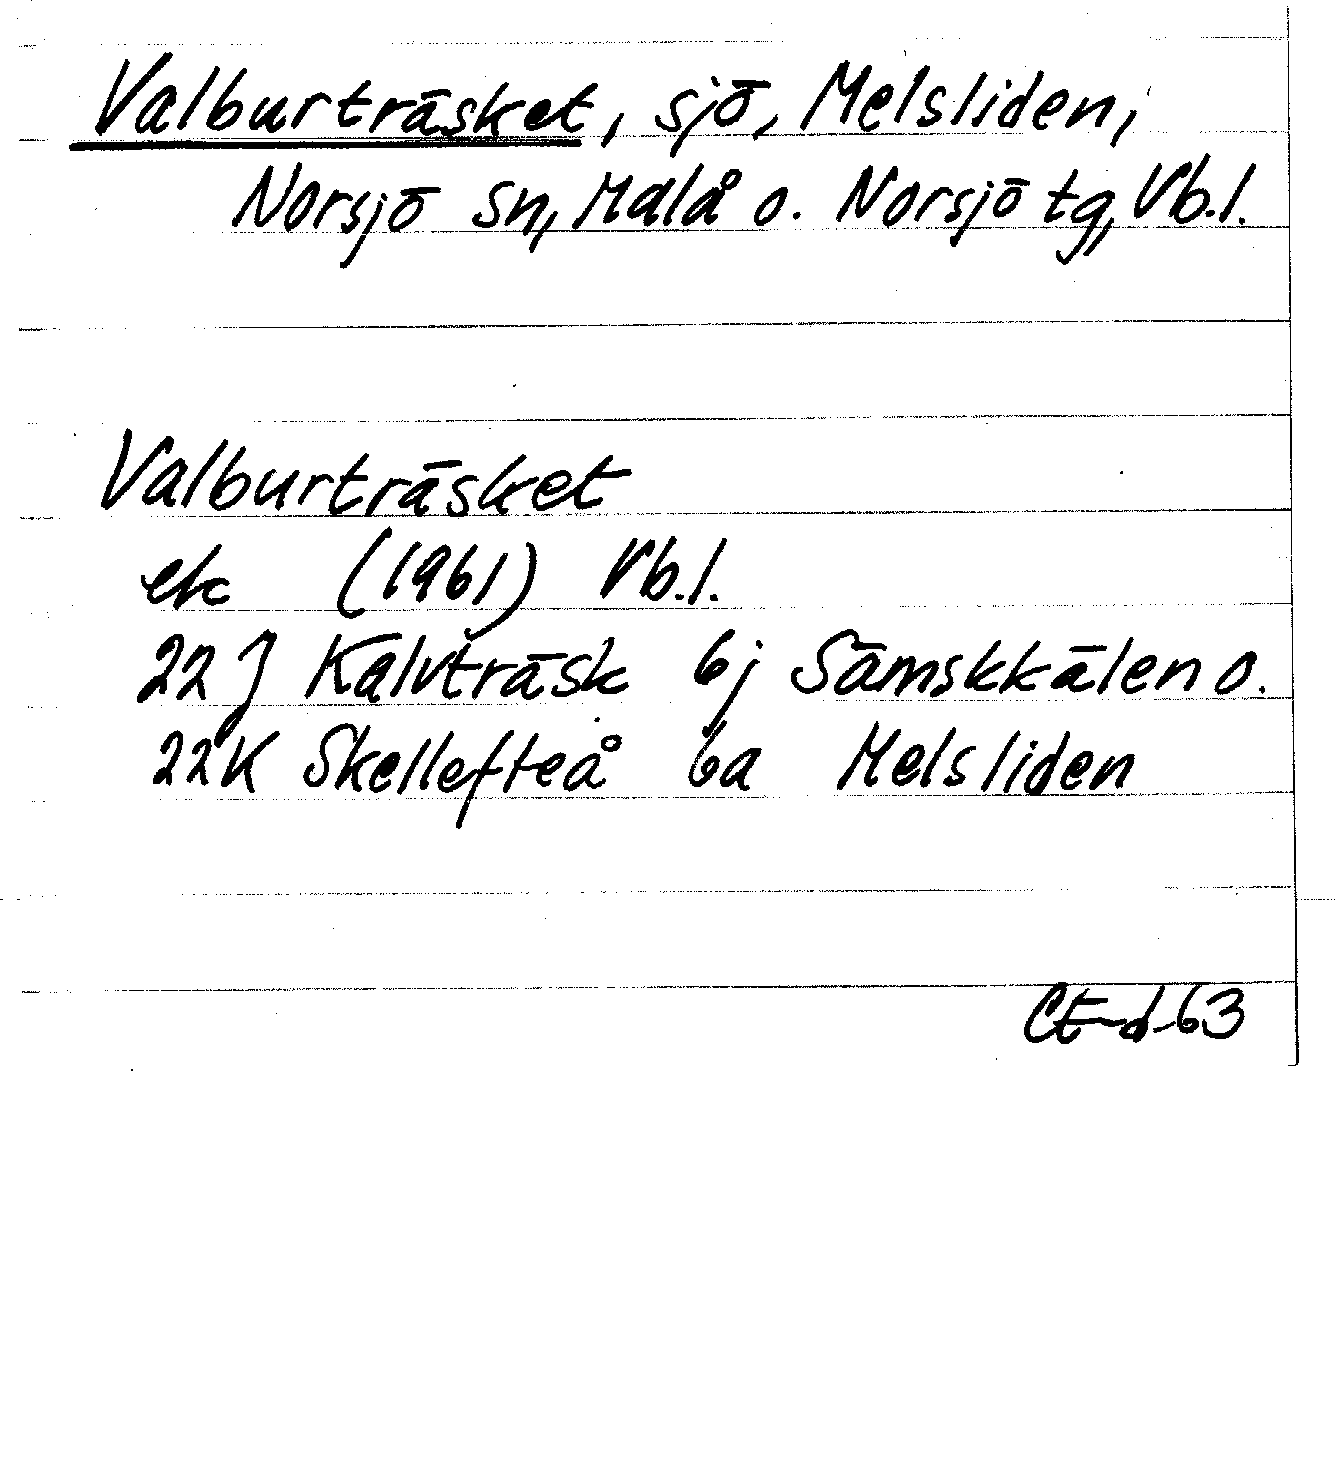 Valburträsket, sjö, Melsliden,
Norsjö sn, Malå o. Norsjö tg, Vb.l.
Valburträsket
ek (1961) Vb.l.
22J Kalvträsk 6j Sämskkälen o.
22K Skellefteå 6a Melsliden